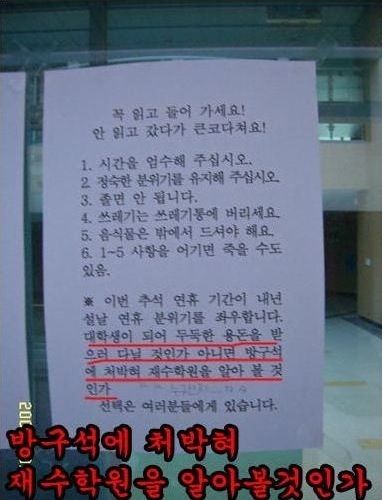 꼭 읽고 들어 가세요!
안 읽고 갔다가 큰코다쳐요!
1. 시간을 엄수해 주십시오.
2. 정숙한 분위기를 유지해 주십시오
3. 졸면 안 됩니다.
4. 쓰레기는 쓰레기통에 버리세요.
5. 음식물은 밖에서 드셔야 해요.
6. 1~5 사항을 어기면 죽을 수도
있음.
※ 이번 추석 연휴 기간이 내년
설날 연휴 분위기를 좌우합니다.
대학생이 되어 두둑한 용돈을 받
으러 다닐 것인가 아니면 방구석
에 처박혀 재수학원을 알아 볼 것
인가
선택은 여러분들에게 있습니다.
방구석에 처박혀
재수학원을 알아볼것인가